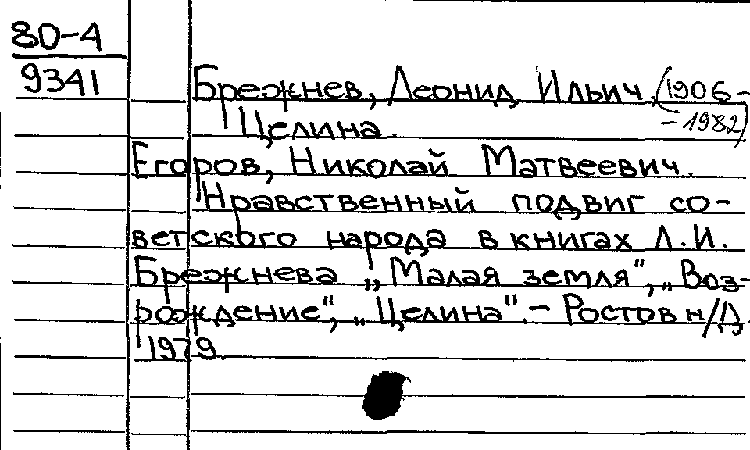 80-4
9341
Брежнев, Леонид Ильич (1906-
-1982)
Целина.
Егоров, Николай Матвеевич.
Нравственный подвиг со-
ветского народа в книгах Л.И.
Брежнева „Малая земля", „Воз-
рождение", „Целина". - Ростов н/Д.
1979